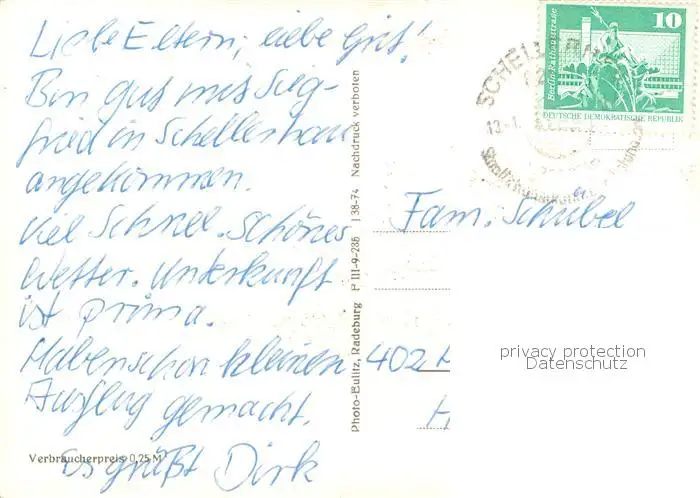 Liebe Eltern, liebe Grit!
Bin gut mit Sieg-
fried in Schellerhau
angekommen.
Viel Schnee. Schönes
Wetter. Unterkunft
ist prima.
Haben schon kleinen
Ausflug gemacht.
Es grüßt Dirk
Verbraucherpreis 0,25 M
Photo-Eulitz, Radeburg P III-9-236 J 38-74 Nachdruck verboten
10
Berlin-Rathausstraße
DEUTSCHE DEMOKRATISCHE REPUBLIK
Fam. Schubel
402
privacy protection
Datenschutz